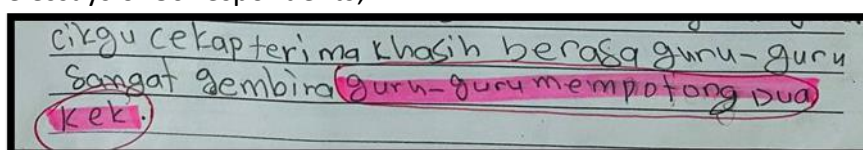 cikgu cekap terima khasih berasa guru-guru
Sangat gembira guru-guru mempotong Dua
kek.